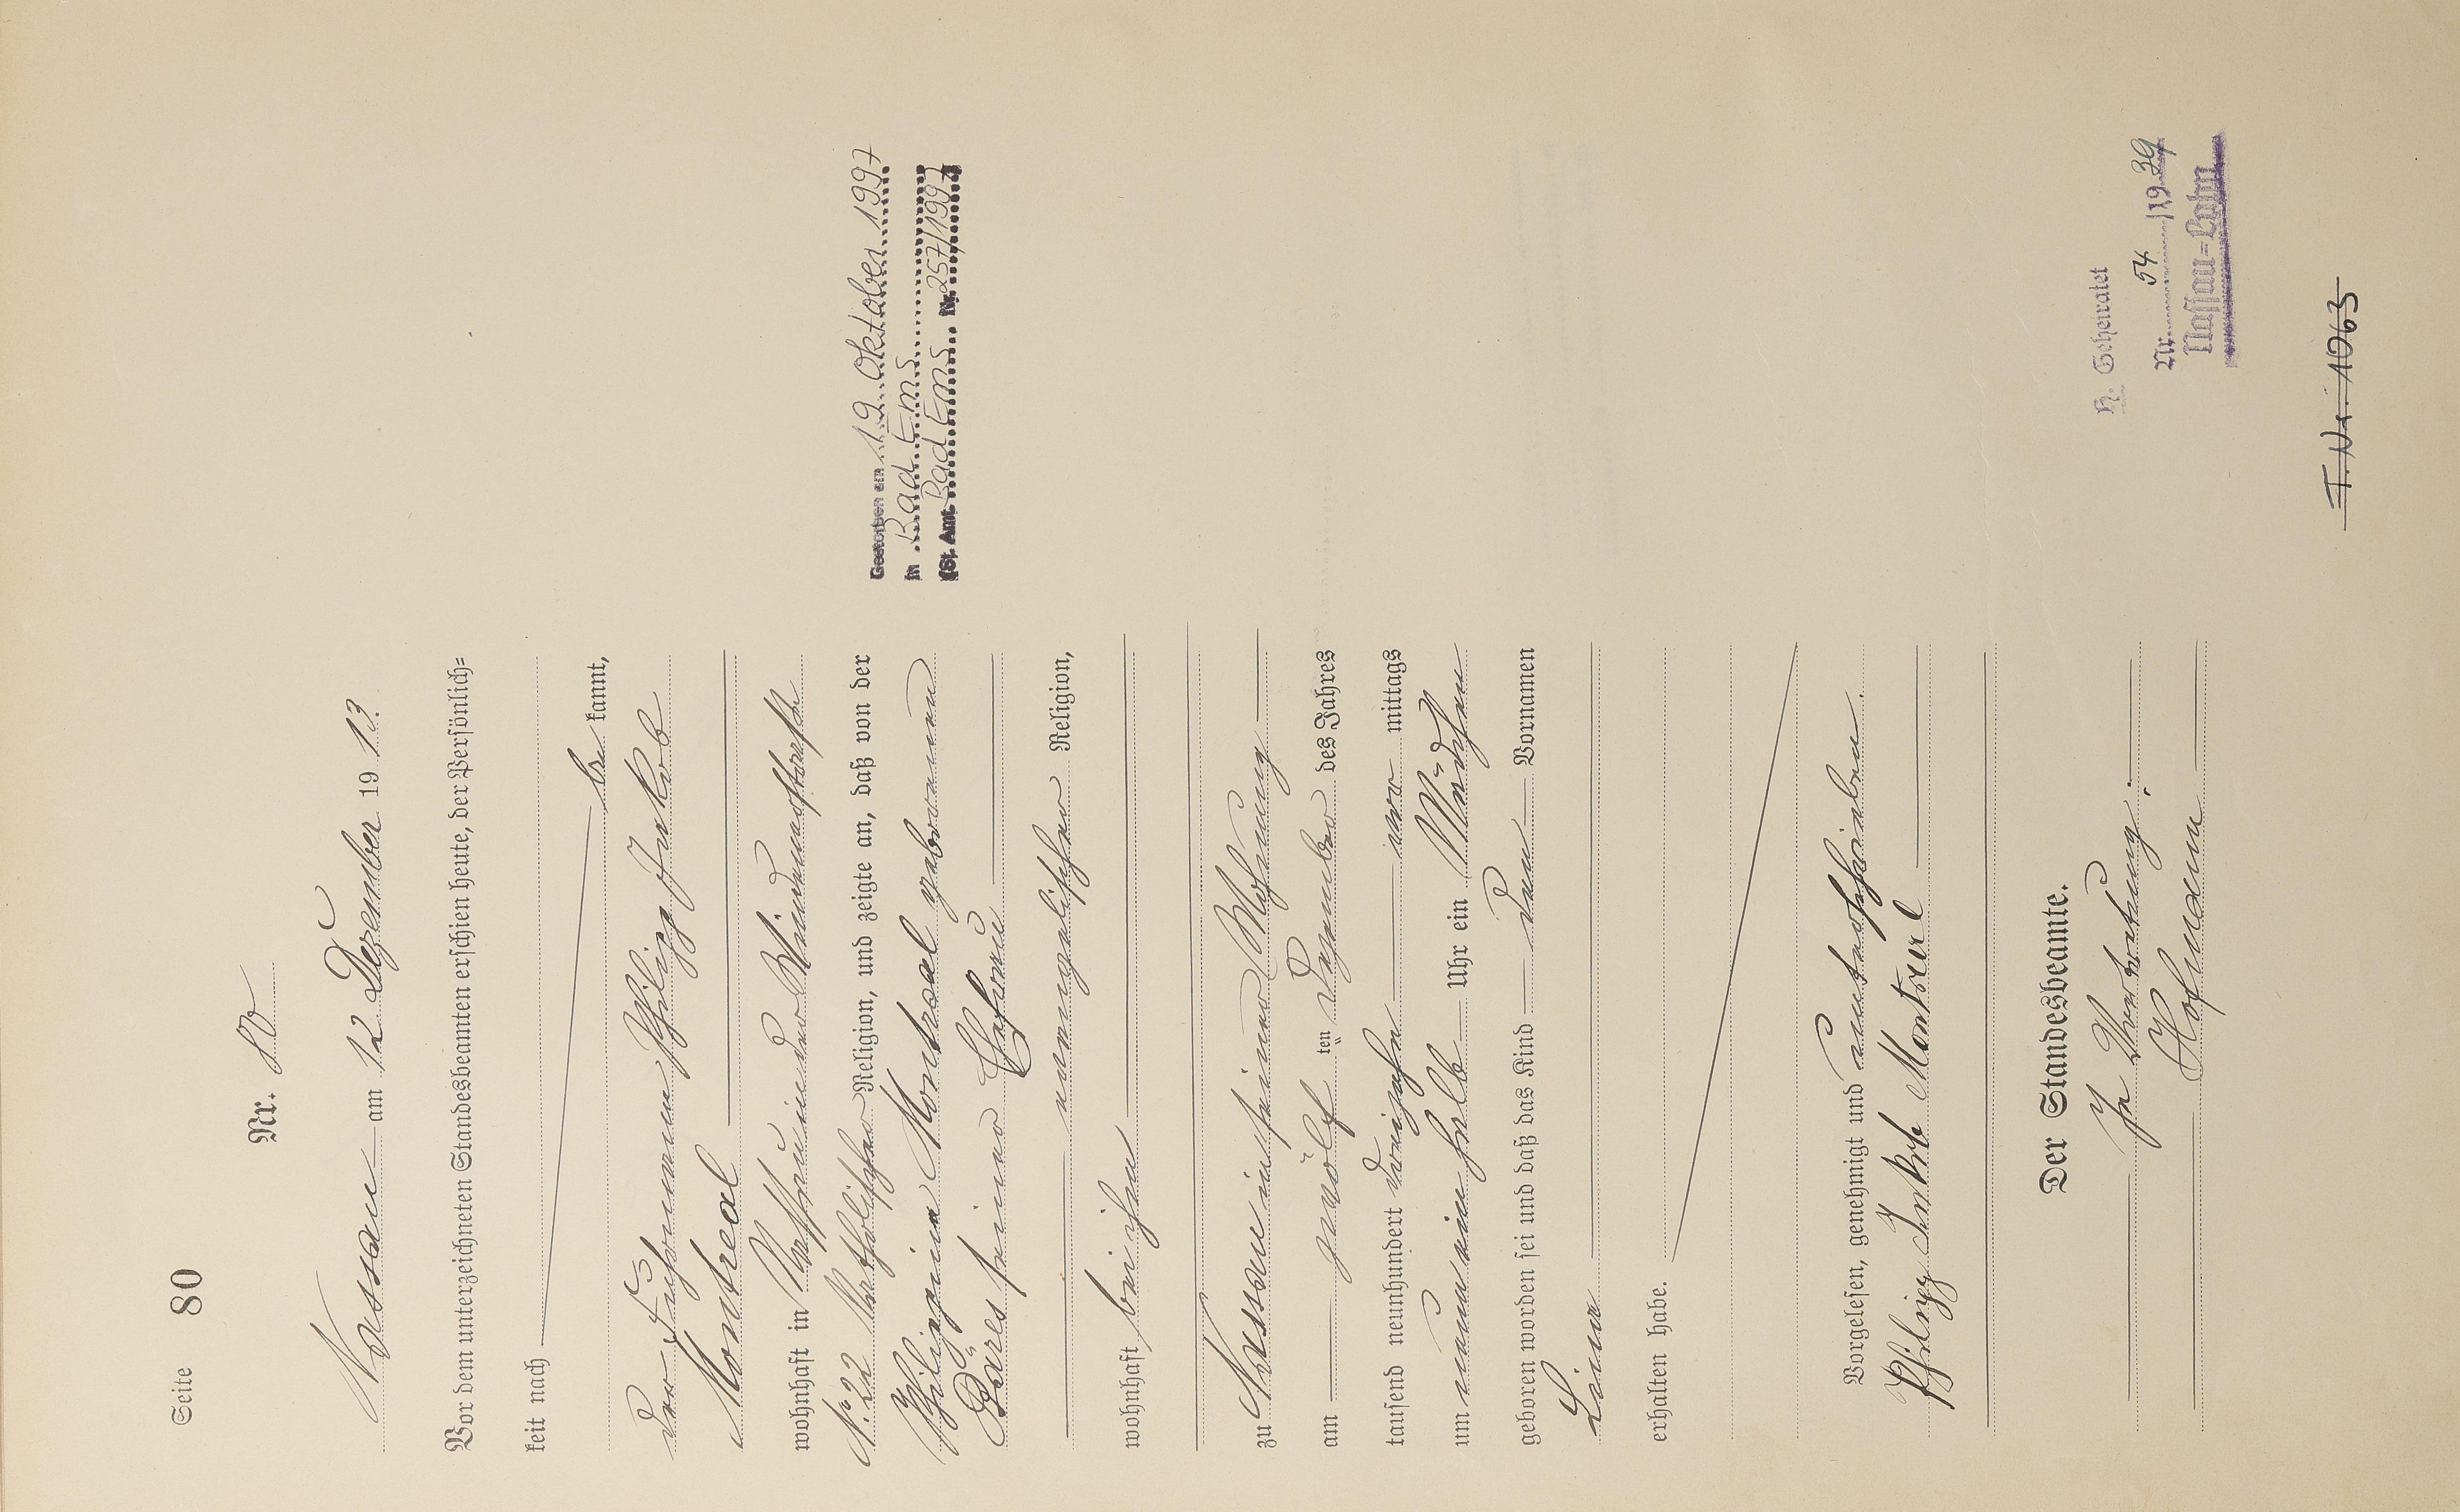 Seite 80
Nr. 80
Nassau am 12 Dezember 1913.
Vor dem unterzeichneten Standesbeamten erschien heute, der Persönlich=
keit nach
be kannt,
der Fuhrmann Philipp Jakob
Montreal
wohnhaft in Nassau in der Windmühlstraße
N: 22 katholischer Religion, und zeigte an, daß von der
Philippine Montreal geborenen
Bäres seiner Ehefrau
evangelischer Religion,
wohnhaft bei ihm
zu Nassau in seiner Wohnung
am zwölf ten Dezember des Jahres
tausend neunhundert dreizehn vor mittags
um neun ein halb Uhr ein Mädchen
geboren worden sei und daß das Kind den Vornamen
Lina
erhalten habe.
Vorgelesen, genehmigt und unterschrieben.
Philipp Jakob Montreal
Der Standesbeamte.
In Vertretung:
Hofmann
Gestorben am 19. Oktober 1997
in Bad Ems
(St. Amt. Bad Ems Nr. 257/1997
H. Geheiratet
Nr. 54 /1939
Nassau=Lahn
T. Nr. 1063